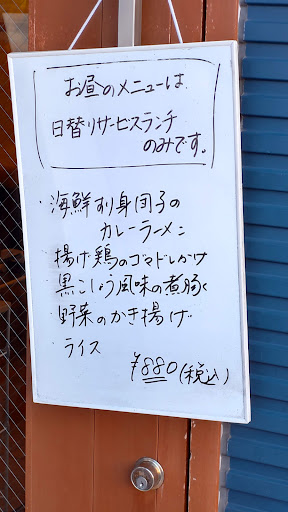 お昼のメニューは
日替りサービスランチ
のみです。
・海鮮すり身団子の
カレーラーメン
・揚げ鶏のゴマドレかけ
・黒こしょう風味の煮豚
・野菜のかき揚げ
・ライス
¥880(税込)